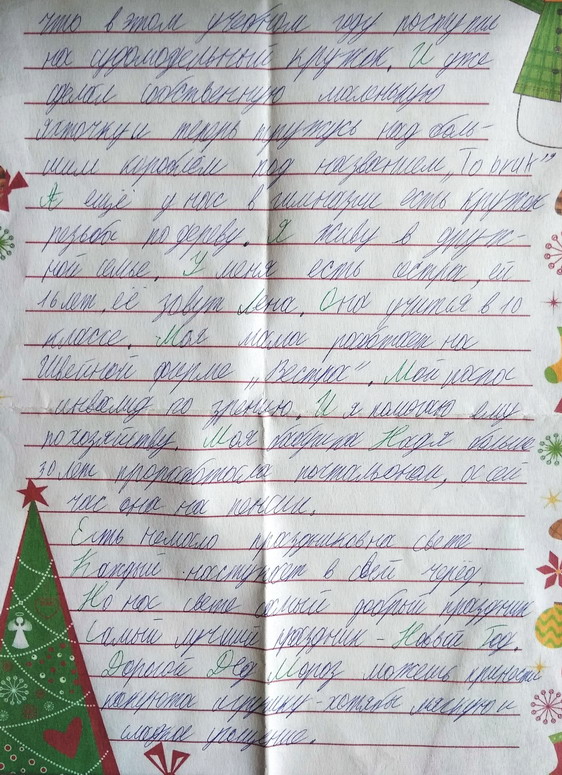 что в этом учебном году поступил
на судомодельный кружок. И уже
сделал собственную маленькую
яхточку и теперь тружусь над боль-
шим кораблём под названием „То бриг"
А ещё у нас в гимназии есть кружок
резьбы по дереву. Я живу в друж-
ной семье. У меня есть сестра, ей
16 лет, её зовут Лена. Она учится в 10
классе. Моя мама работает на
Швейной фирме „Вестра". Мой папа
инвалид по зрению. И я помогаю ему
по хозяйству. Моя бабушка Надя больше
30 лет проработала почтальоном, а сей
час она на пенсии.
Есть немало праздников на свете.
Каждый наступает в свой черёд.
Но на свете самый добрый праздник
Самый лучший праздник - Новый Год.
Дорогой Дед Мороз можешь принести
какую то игрушку - хотябы мягкую и
сладкое угощение.